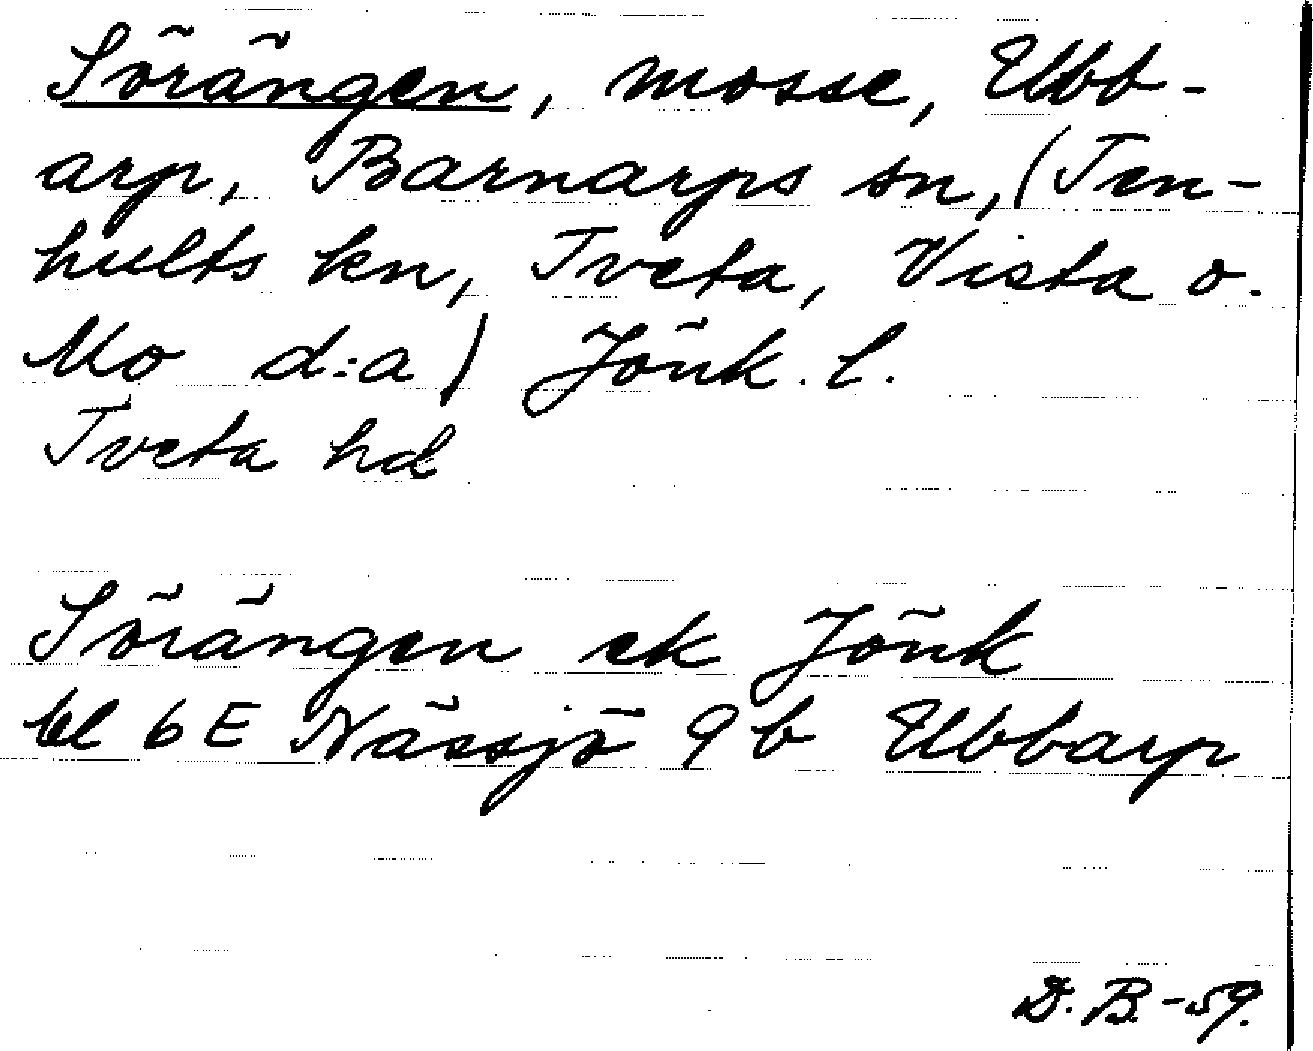 Sörängen, mosse, Ubb-
arp, Barnarps sn, (Ten-
hults kn, Tveta, Vista o.
Mo d:a) Jönk. l.
Tveta hd
Sörängen ek Jönk
bl 6E Nässjö 9 b Ubbarp
D. B. -59.